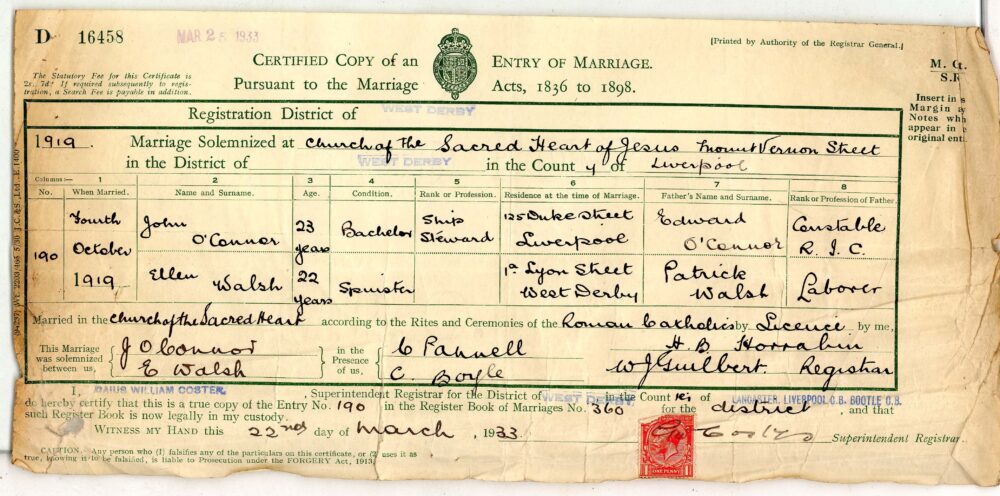 D 16458
MAR 25 1933
[Printed by Authority of the Registrar General.]
CERTIFIED COPY OF AN ENTRY OF MARRIAGE.
Pursuant to the Marriage Acts, 1836 to 1898.
The Statutory Fee for this Certificate is
2s. 7d. If required subsequently to regis-
tration, a Search Fee is payable in addition.
M. G.
S.R
Insert in
Margin a
Notes wh
appear in
original ent
Registration District of WEST DERBY
1919. Marriage Solemnized at Church of the Sacred Heart of Jesus Mount Vernon Street
in the District of WEST DERBY in the County of Liverpool
Columns :— 1 2 3 4 5 6 7 8
No. When Married. Name and Surname. Age. Condition. Rank or Profession. Residence at the time of Marriage. Father's Name and Surname. Rank or Profession of Father.
190
Fourth October 1919
John O'Connor 23 years Bachelor Ship Steward 125 Duke Street Liverpool Edward O'Connor Constable R. I. C.
Ellen Walsh 22 years Spinster Lyon Street West Derby Patrick Walsh Laborer
Married in the Church of the Sacred Heart according to the Rites and Ceremonies of the Roman Catholics by Licence by me,
H. B Horrabin
This Marriage was solemnized between us, J O'Connor E Walsh in the Presence of us, C Pannell C. Boyle W J Guilbert. Registrar
I, DARIUS WILLIAM COSTER, Superintendent Registrar for the District of WEST DERBY in the Count ies of LANCASTER, LIVERPOOL C.B. BOOTLE C.B.
do hereby certify that this is a true copy of the Entry No. 190 in the Register Book of Marriages No. 360 for the district, and that
such Register Book is now legally in my custody.
WITNESS MY HAND this 22nd day of March, 1933. Superintendent Registrar
CAUTION.—Any person who (1) falsifies any of the particulars on this certificate, or (2) uses it as
true, knowing it to be falsified, is liable to Prosecution under the FORGERY Act, 1913.
ONE PENNY